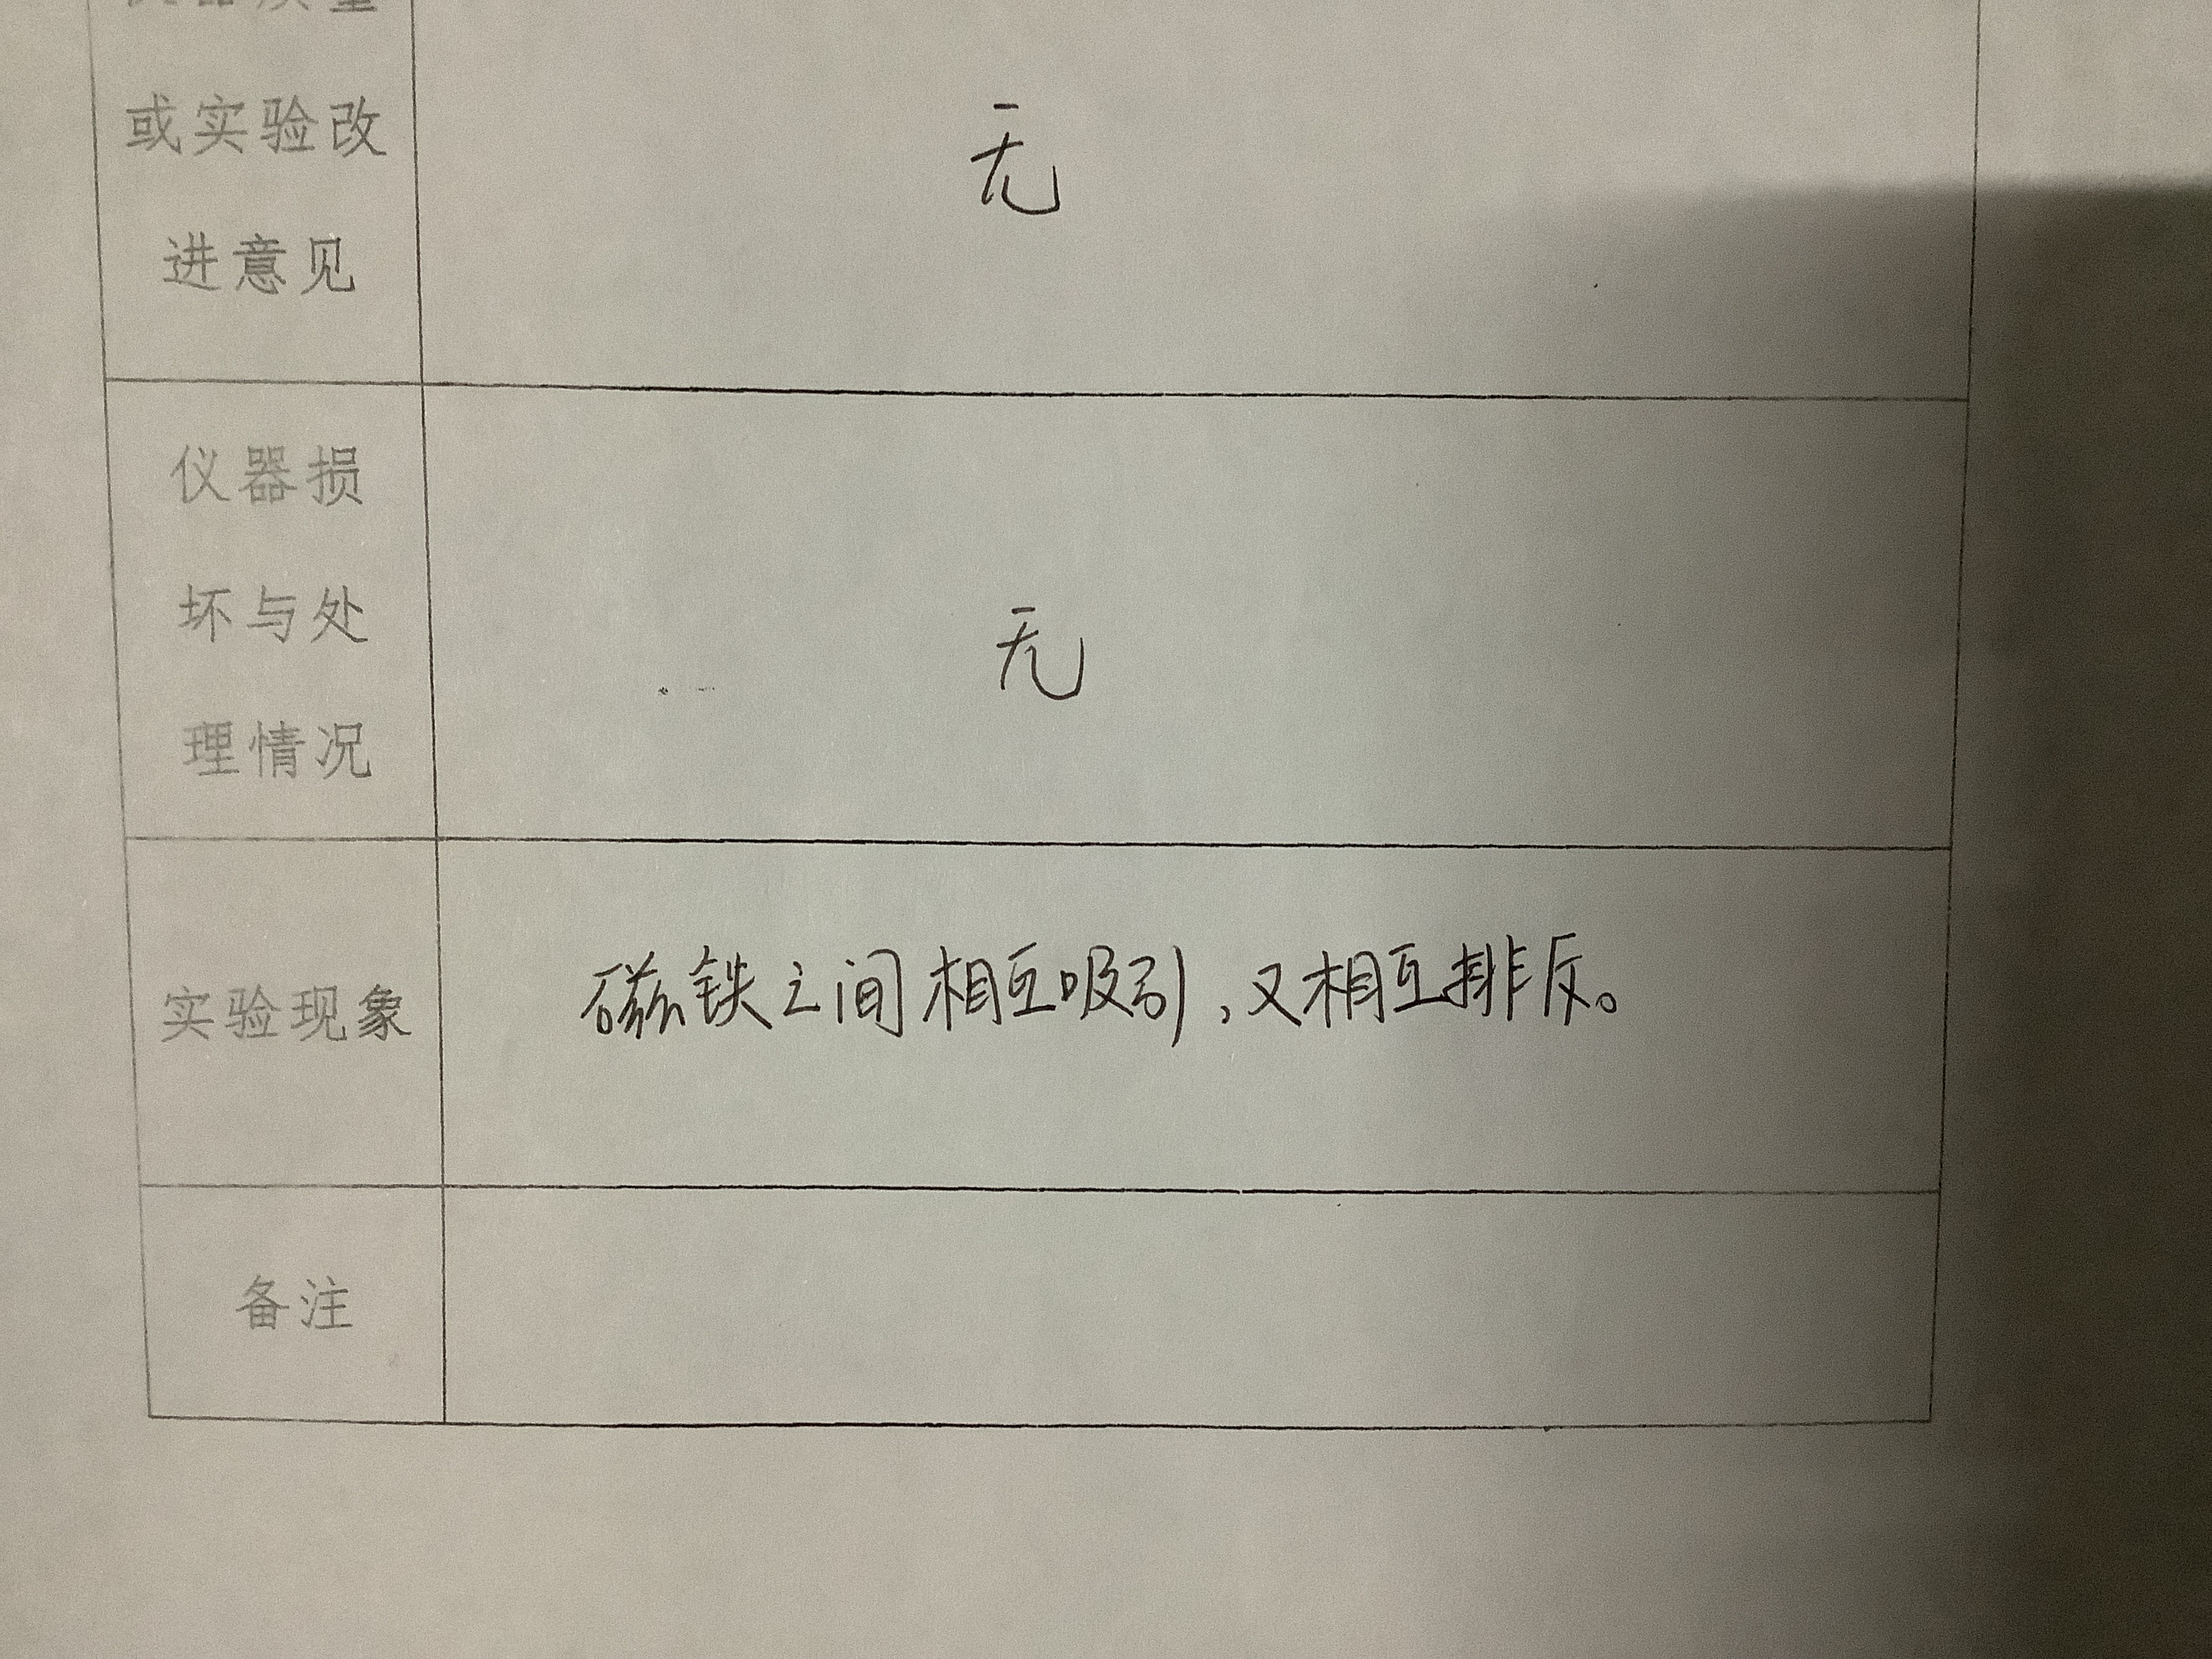 仪器质量
或实验改
进意见
无
仪器损
坏与处
理情况
无
实验现象
磁铁之间相互吸引，又相互排斥。
备注